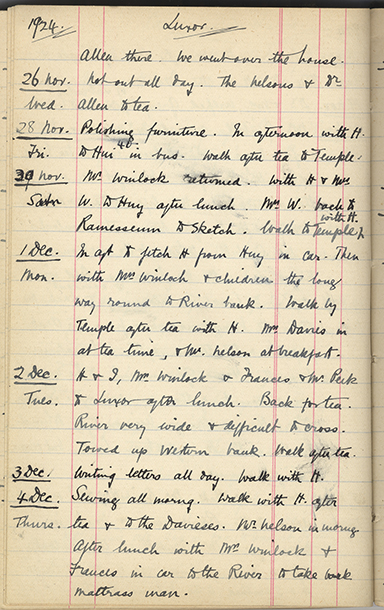 1924. Luxor.
Allen there. We went over the house.
26 Nov. Not out all day. The Nelsons & Dr
Wed. Allen to tea.
28 Nov. Polishing furniture. In afternoon with H.
Fri. to in bus. Walk after tea to Temple.
29 Nov. Mr Winlock returned. With H & Mrs
Satn W. to Huy after lunch. Mrs W. back to
with H.
Ramesseum to Sketch. Walk to Temple
1 Dec. In aft to fetch H from Huy in car. Then
Mon. with Mrs Winlock & children the long
way round to River bank. Walk by
Temple after tea with H. Mrs Davies in
at tea time, & Mr. Nelson at breakfast.
2 Dec. H & I, Mrs Winlock & Frances & Mr Peek
Tues. to Luxor after lunch. Back for tea.
River very wide & difficult to cross.
Towed up Western bank. Walk after tea.
3 Dec. Writing letters all day. Walk with H.
4 Dec. Sewing all morng. Walk with H. after
Thurs. tea & to the Davieses. Mr Nelson in morng
After lunch with Mrs Winlock &
Frances in car to the River to take
mattrass man.